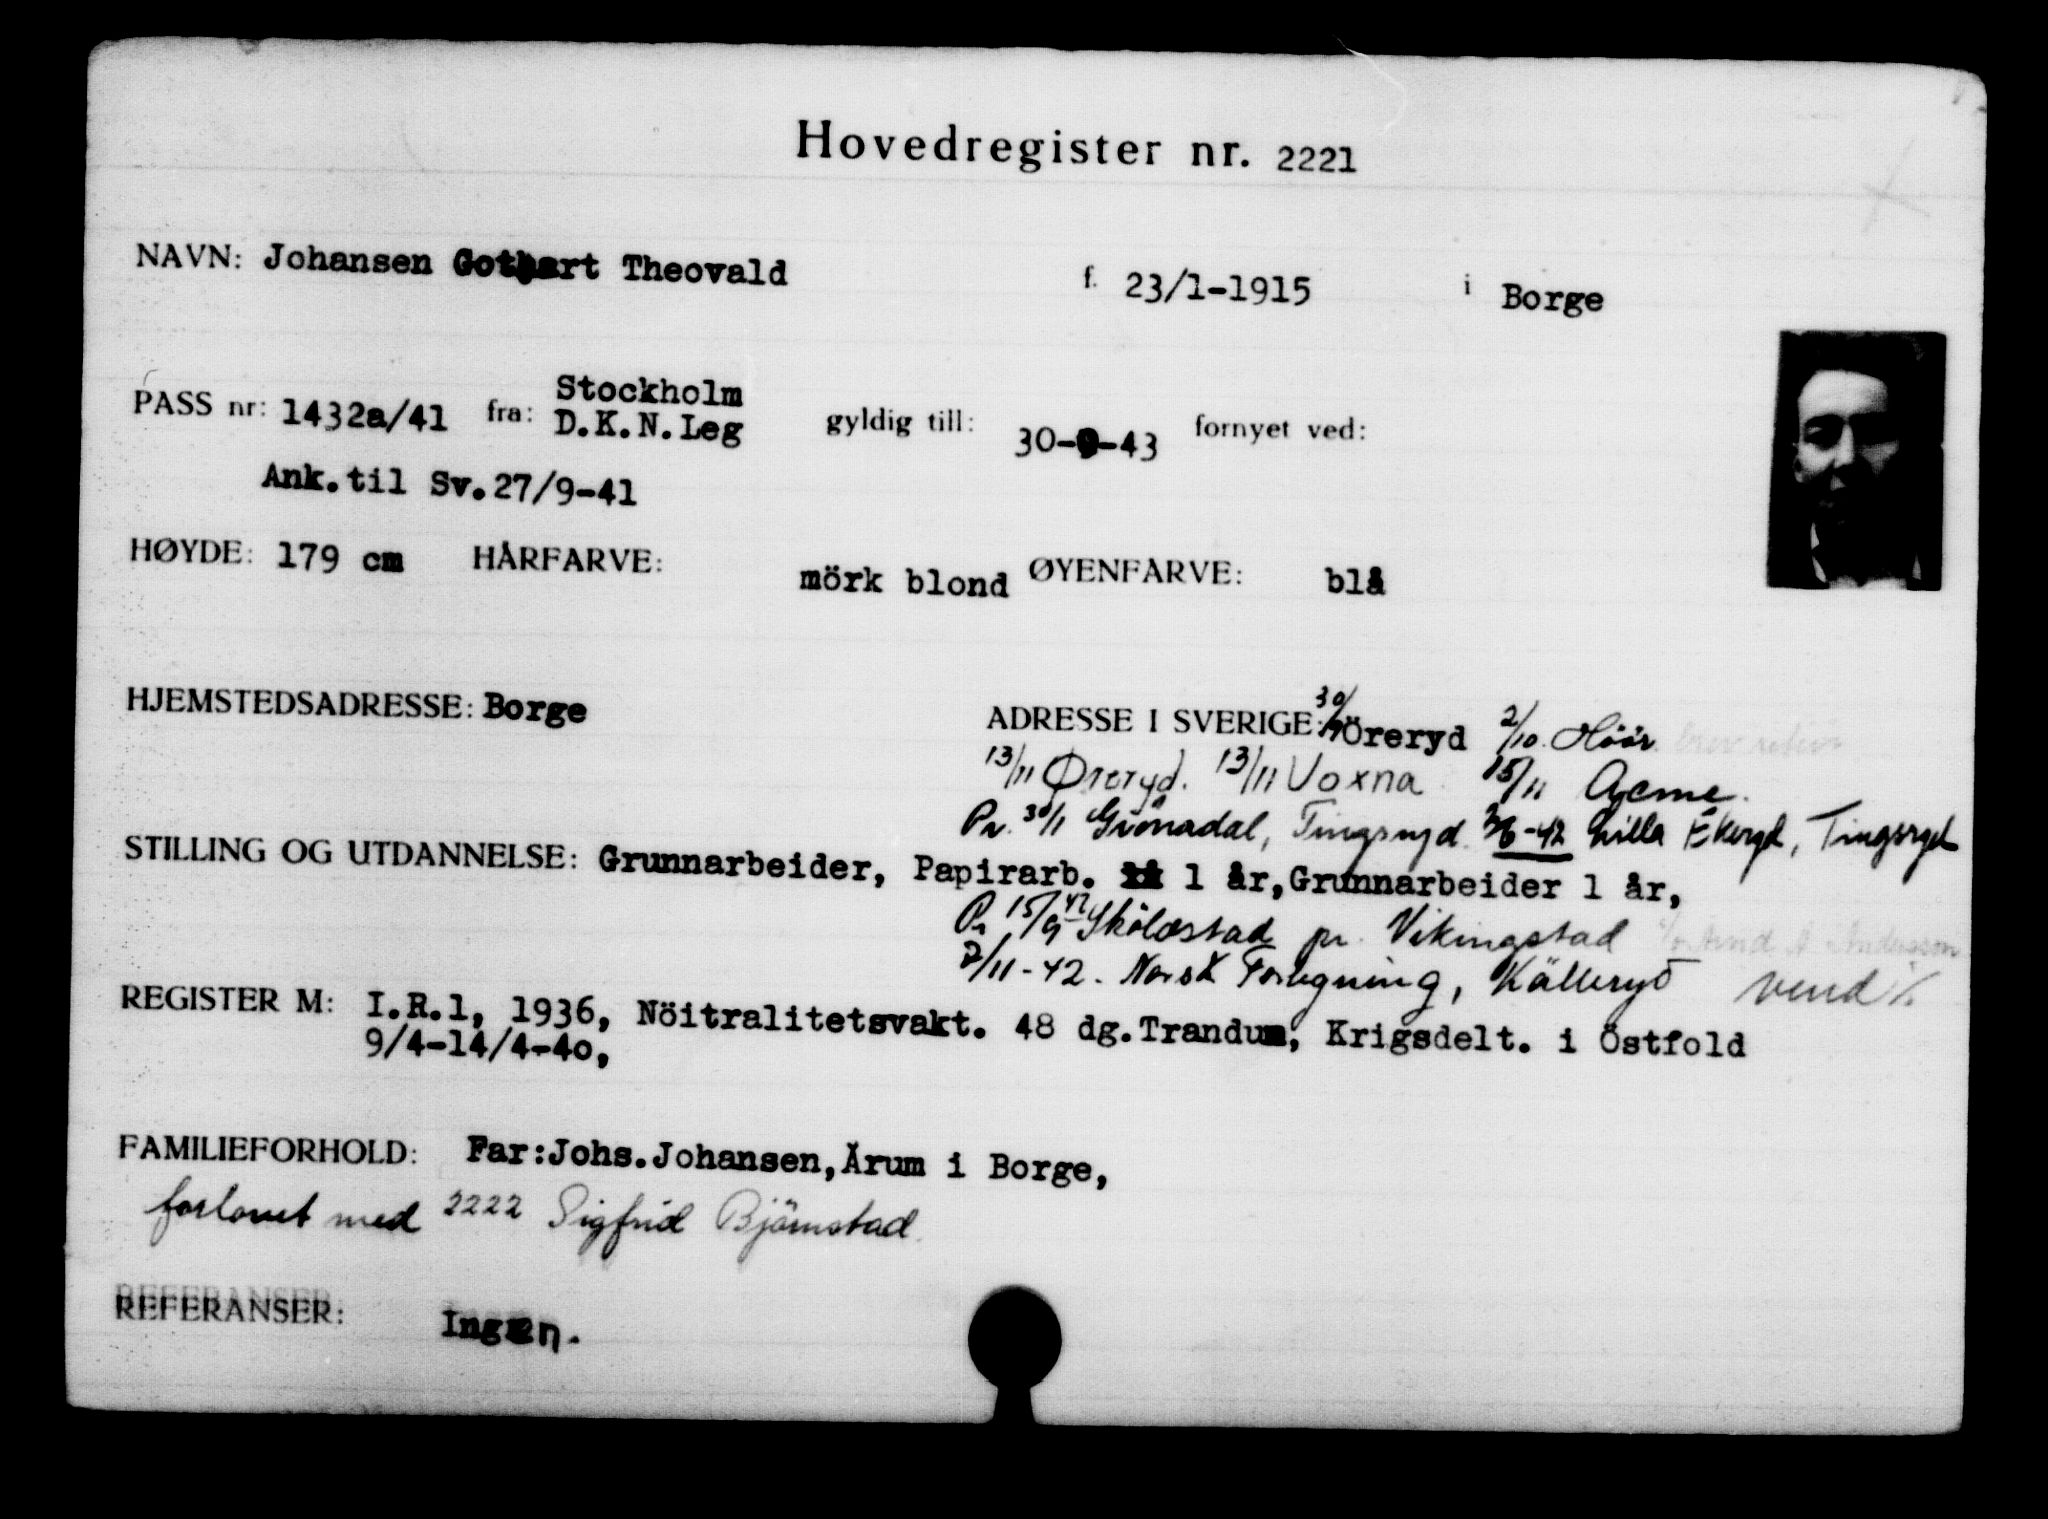 Hovedregister nr. 2221
NAVN: Johansen Gothart Theovald f. 23/1-1915 i Borge
PASS nr: 1432a/41 fra: Stockholm D.K.N.Leg gyldig till: 30-9-43 fornyet ved:
Ank.til Sv.27/9-41
HØYDE: 179 cm HÅRFARVE: mörk blond ØYENFARVE: blå
HJEMSTEDSADRESSE: Borge ADRESSE I SVERIGE: 30/9 Öreryd 2/10. Höör.
13/11 Øreryd. 13/11 Voxna 15/11
Pr. 30/1 Grönadal, Tingsryd. Lilla Ekeryd, Tingsryd
STILLING OG UTDANNELSE: Grunnarbeider, Papirarb. 1 år, Grunnarbeider 1 år,
Pr 15/9 42 pr. Vikingstad
2/11-42. Norsk Forlegning, Källeryd vend ./.
REGISTER M: I.R.1, 1936, Nöitralitetsvakt. 48 dg. Trandum, Krigsdelt. i Östfold
9/4-14/4-40,
FAMILIEFORHOLD: Far:Johs.Johansen, Årum i Borge,
forlovet med 2222 Sigfrid Björnstad.
REFERANSER: Ingen.